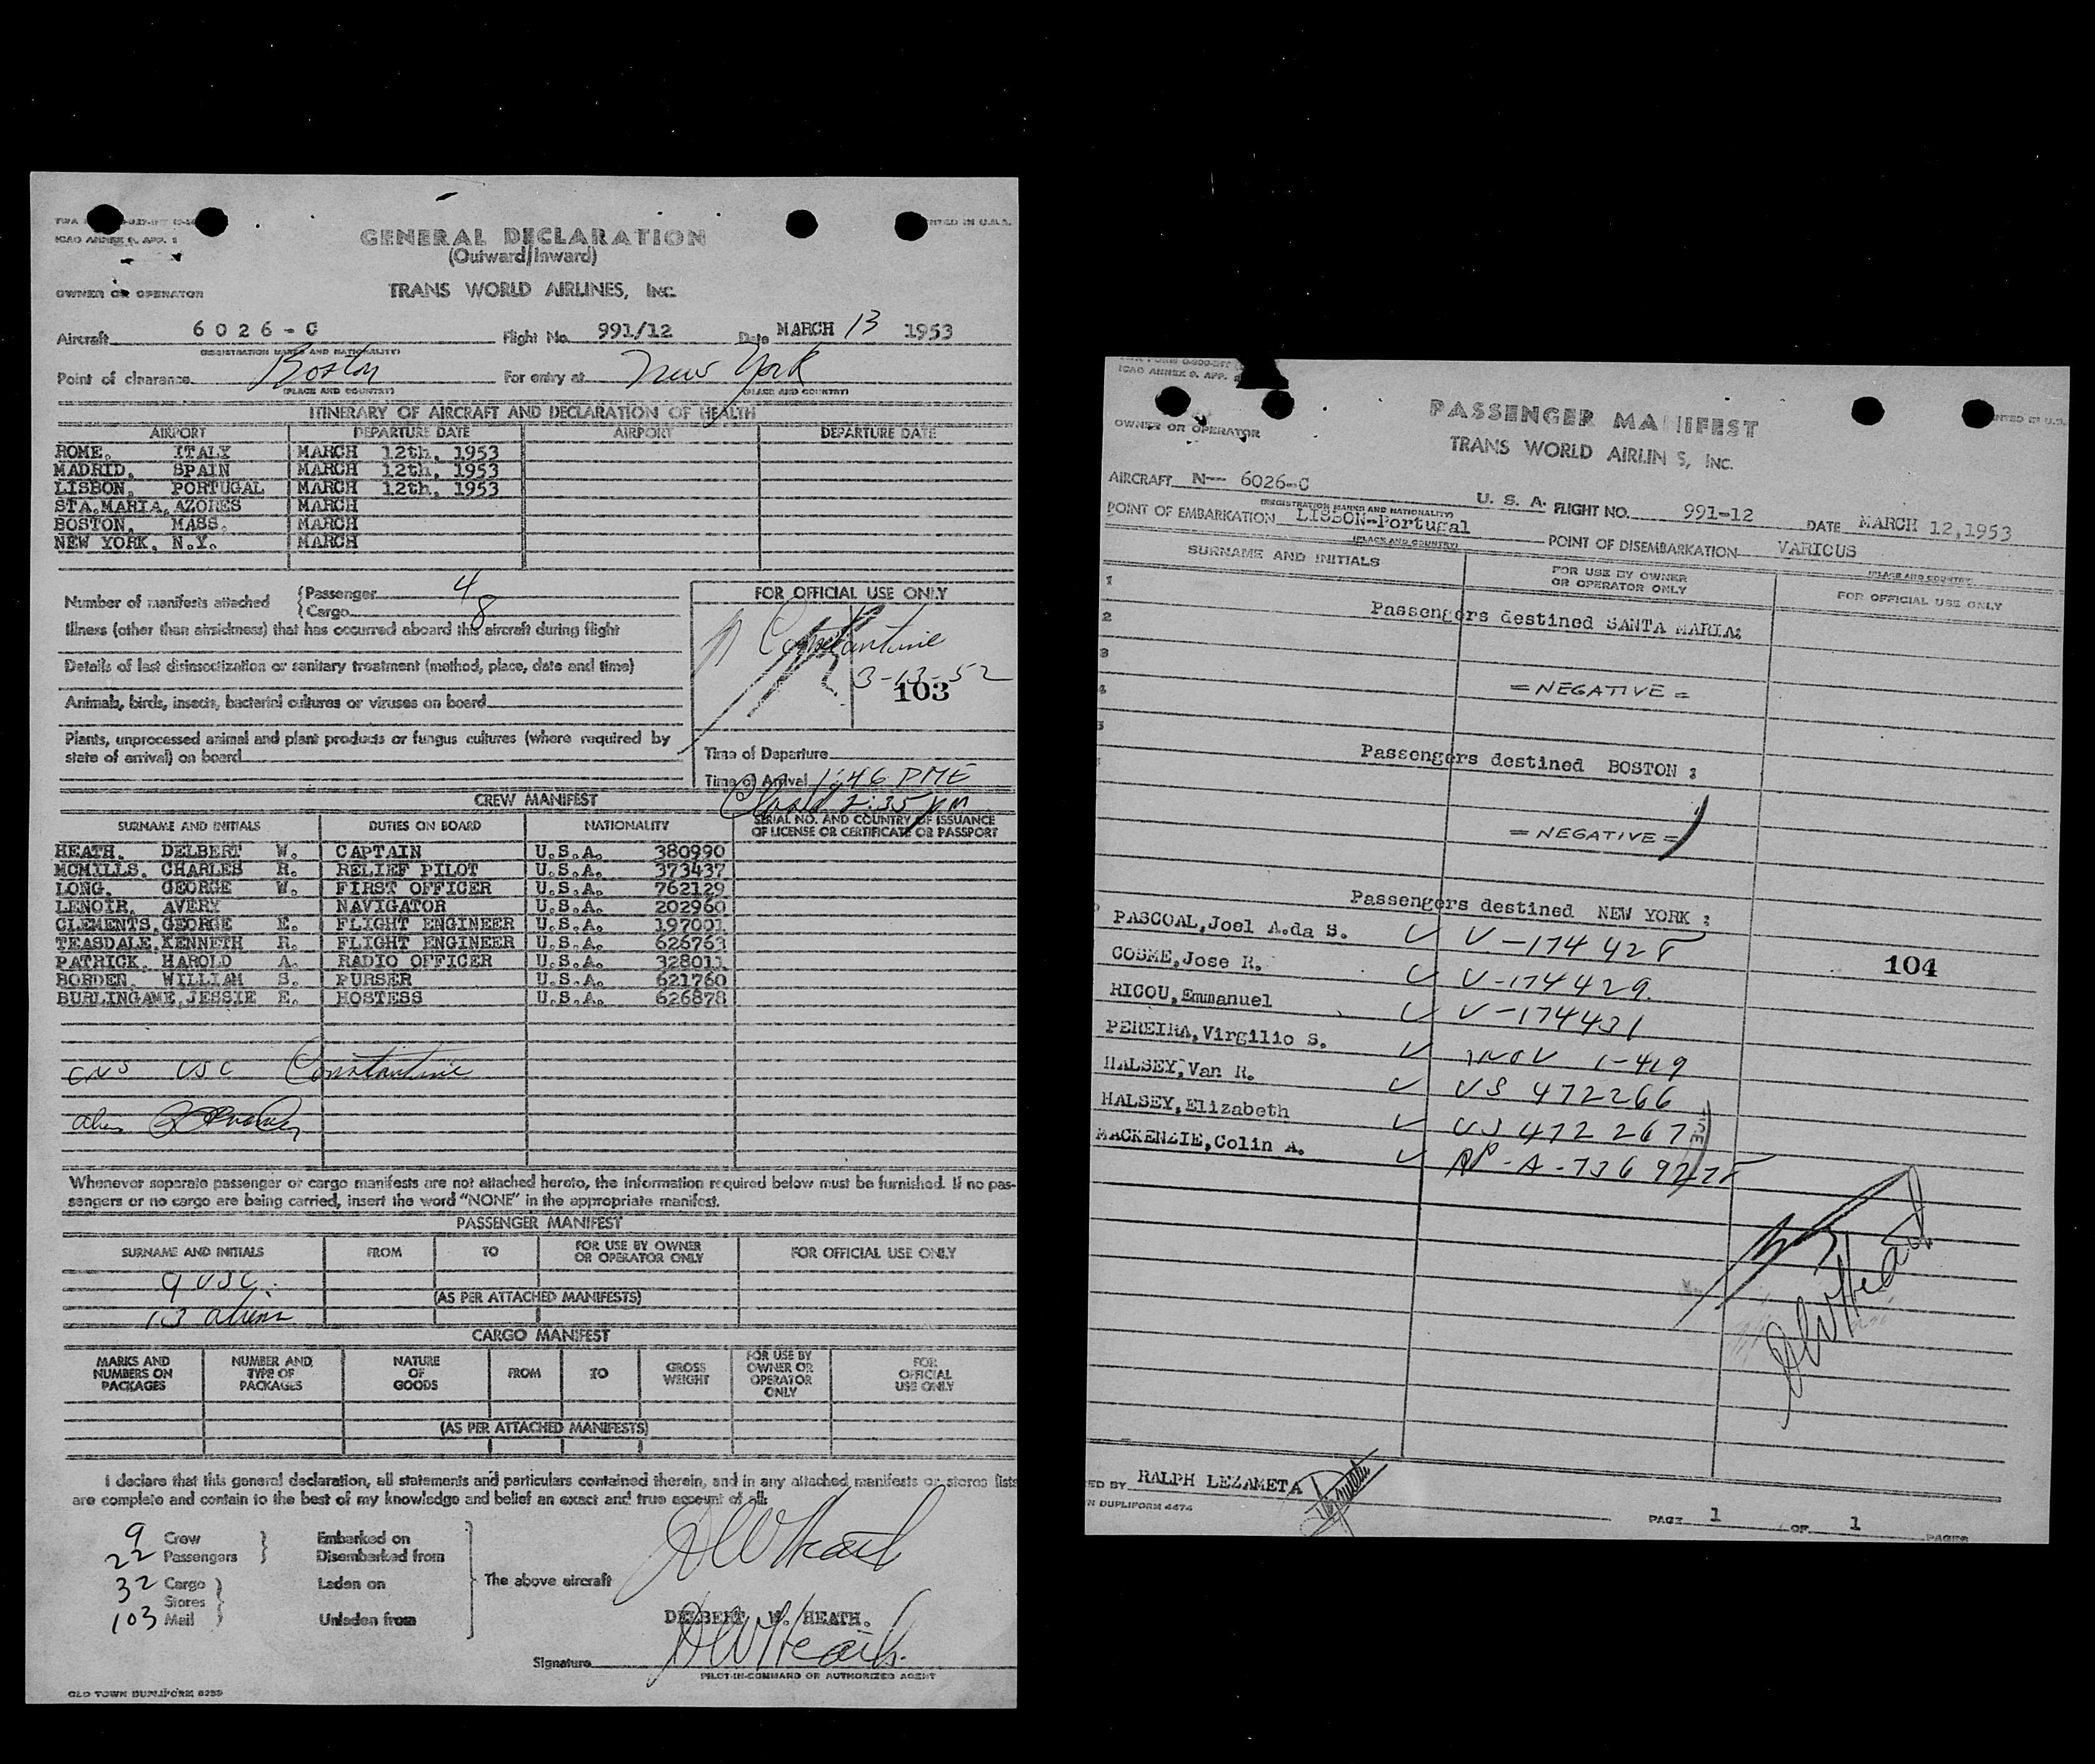 ICAO ANNEX 9. APP. 1
GENERAL DECLARATION
(Outward/Inward)
OWNER OR OPERATOR TRANS WORLD AIRLINES, INC.
Aircraft 6026-C Flight No. 991/12 Date MARCH 13 1953
(REGISTRATION MARKS AND NATIONALITY)
Point of clearance Boston For entry at New York
(PLACE AND COUNTRY) (PLACE AND COUNTRY)
ITINERARY OF AIRCRAFT AND DECLARATION OF HEALTH
AIRPORT DEPARTURE DATE AIRPORT DEPARTURE DATE
ROME, ITALY MARCH 12th, 1953
MADRID, SPAIN MARCH 12th, 1953
LISBON, PORTUGAL MARCH 12th, 1953
STA.MARIA, AZORES MARCH
BOSTON, MASS. MARCH
NEW YORK, N.Y. MARCH
Number of manifests attached {Passenger 4
{Cargo 8
Illness (other than airsickness) that has occurred aboard this aircraft during flight
Details of last disinsectization or sanitary treatment (method, place, date and time)
Animals, birds, insects, bacterial cultures or viruses on board
Plants, unprocessed animal and plant products or fungus cultures (where required by
state of arrival) on board
FOR OFFICIAL USE ONLY
Constantine
3-13-52
103
Time of Departure
Time of Arrival 1:46 PME
2:35 PM
CREW MANIFEST
SURNAME AND INITIALS DUTIES ON BOARD NATIONALITY SERIAL NO. AND COUNTRY OF ISSUANCE
OF LICENSE OR CERTIFICATE OR PASSPORT
HEATH, DELBERT W. CAPTAIN U.S.A. 380990
MCMILLS, CHARLES R. RELIEF PILOT U.S.A. 373437
LONG, GEORGE W. FIRST OFFICER U.S.A. 762129
LENOIR, AVERY NAVIGATOR U.S.A. 202960
CLEMENTS, GEORGE E. FLIGHT ENGINEER U.S.A. 197001
TEASDALE, KENNETH R. FLIGHT ENGINEER U.S.A. 626763
PATRICK, HAROLD A. RADIO OFFICER U.S.A. 328011
BORDEN, WILLIAM S. PURSER U.S.A. 621760
BURLINGAME, JESSIE E. HOSTESS U.S.A. 626878
USC Constantine
Whenever separate passenger or cargo manifests are not attached hereto, the information required below must be furnished. If no pas-
sengers or no cargo are being carried, insert the word "NONE" in the appropriate manifest.
PASSENGER MANIFEST
SURNAME AND INITIALS FROM TO FOR USE BY OWNER
OR OPERATOR ONLY FOR OFFICIAL USE ONLY
9 USC.
(AS PER ATTACHED MANIFESTS)
13 aliens
CARGO MANIFEST
MARKS AND
NUMBERS ON
PACKAGES NUMBER AND
TYPE OF
PACKAGES NATURE
OF
GOODS FROM TO GROSS
WEIGHT FOR USE BY
OWNER OR
OPERATOR
ONLY FOR
OFFICIAL
USE ONLY
(AS PER ATTACHED MANIFESTS)
I declare that this general declaration, all statements and particulars contained therein, and in any attached manifests or stores lists
are complete and contain to the best of my knowledge and belief an exact and true account of all:
9 Crew Embarked on
22 Passengers Disembarked from
32 Cargo Laden on The above aircraft
Stores
103 Mail Unladen from
DW Heath
DELBERT W. HEATH.
Signature DW Heath
PILOT-IN-COMMAND OR AUTHORIZED AGENT
OLD TOWN DUPLIFORM 8239
ICAO ANNEX 9. APP.
PASSENGER MANIFEST
OWNER OR OPERATOR TRANS WORLD AIRLIN S, INC.
AIRCRAFT N-- 6026-C U. S. A. FLIGHT NO. 991-12 DATE MARCH 12,1953
(REGISTRATION MARKS AND NATIONALITY)
POINT OF EMBARKATION LISBON-Portugal POINT OF DISEMBARKATION VARIOUS
(PLACE AND COUNTRY) (PLACE AND COUNTRY)
SURNAME AND INITIALS FOR USE BY OWNER
OR OPERATOR ONLY FOR OFFICIAL USE ONLY
1
2 Passengers destined SANTA MARIA:
3
4 = NEGATIVE =
5
Passengers destined BOSTON :
= NEGATIVE =
Passengers destined NEW YORK :
PASCOAL, Joel A.da S. V-174428
104
COSME, Jose R. V-174429.
RICOU, Emmanuel V-174431
PEREIRA, Virgilio S. 1-419
HALSEY, Van R. US 472266
HALSEY, Elizabeth US 472267
MACKENZIE, Colin A.
DW Heath
ED BY RALPH LEZAMETA
N DUPLIFORM 4474
PAGE 1 OF 1 PAGES